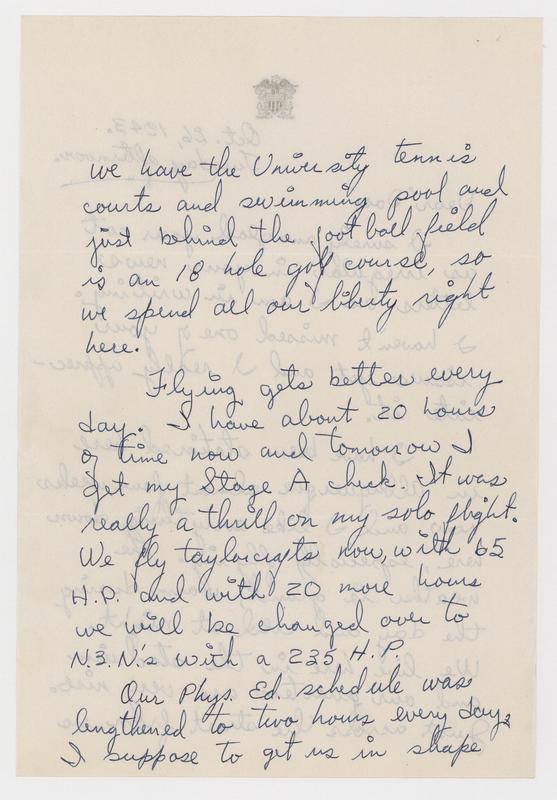 we have the University tennis
courts and swimming pool and
just behind the football field
is an 18 hole golf course, so
we spend all our liberty right
here.
Flying gets better every
day. I have about 20 hours
of time now and tomorrow I
get my Stage A check. It was
really a thrill on my solo flight.
We fly taylorcrafts now, with 65
H.P. and with 20 more hours
we will be changed over to
N.3.N.'s with a 235 H.P.
Our Phys. Ed. schedule was
lengthened to two hours every day,
I suppose to get us in shape
Oct. 26, 1943.